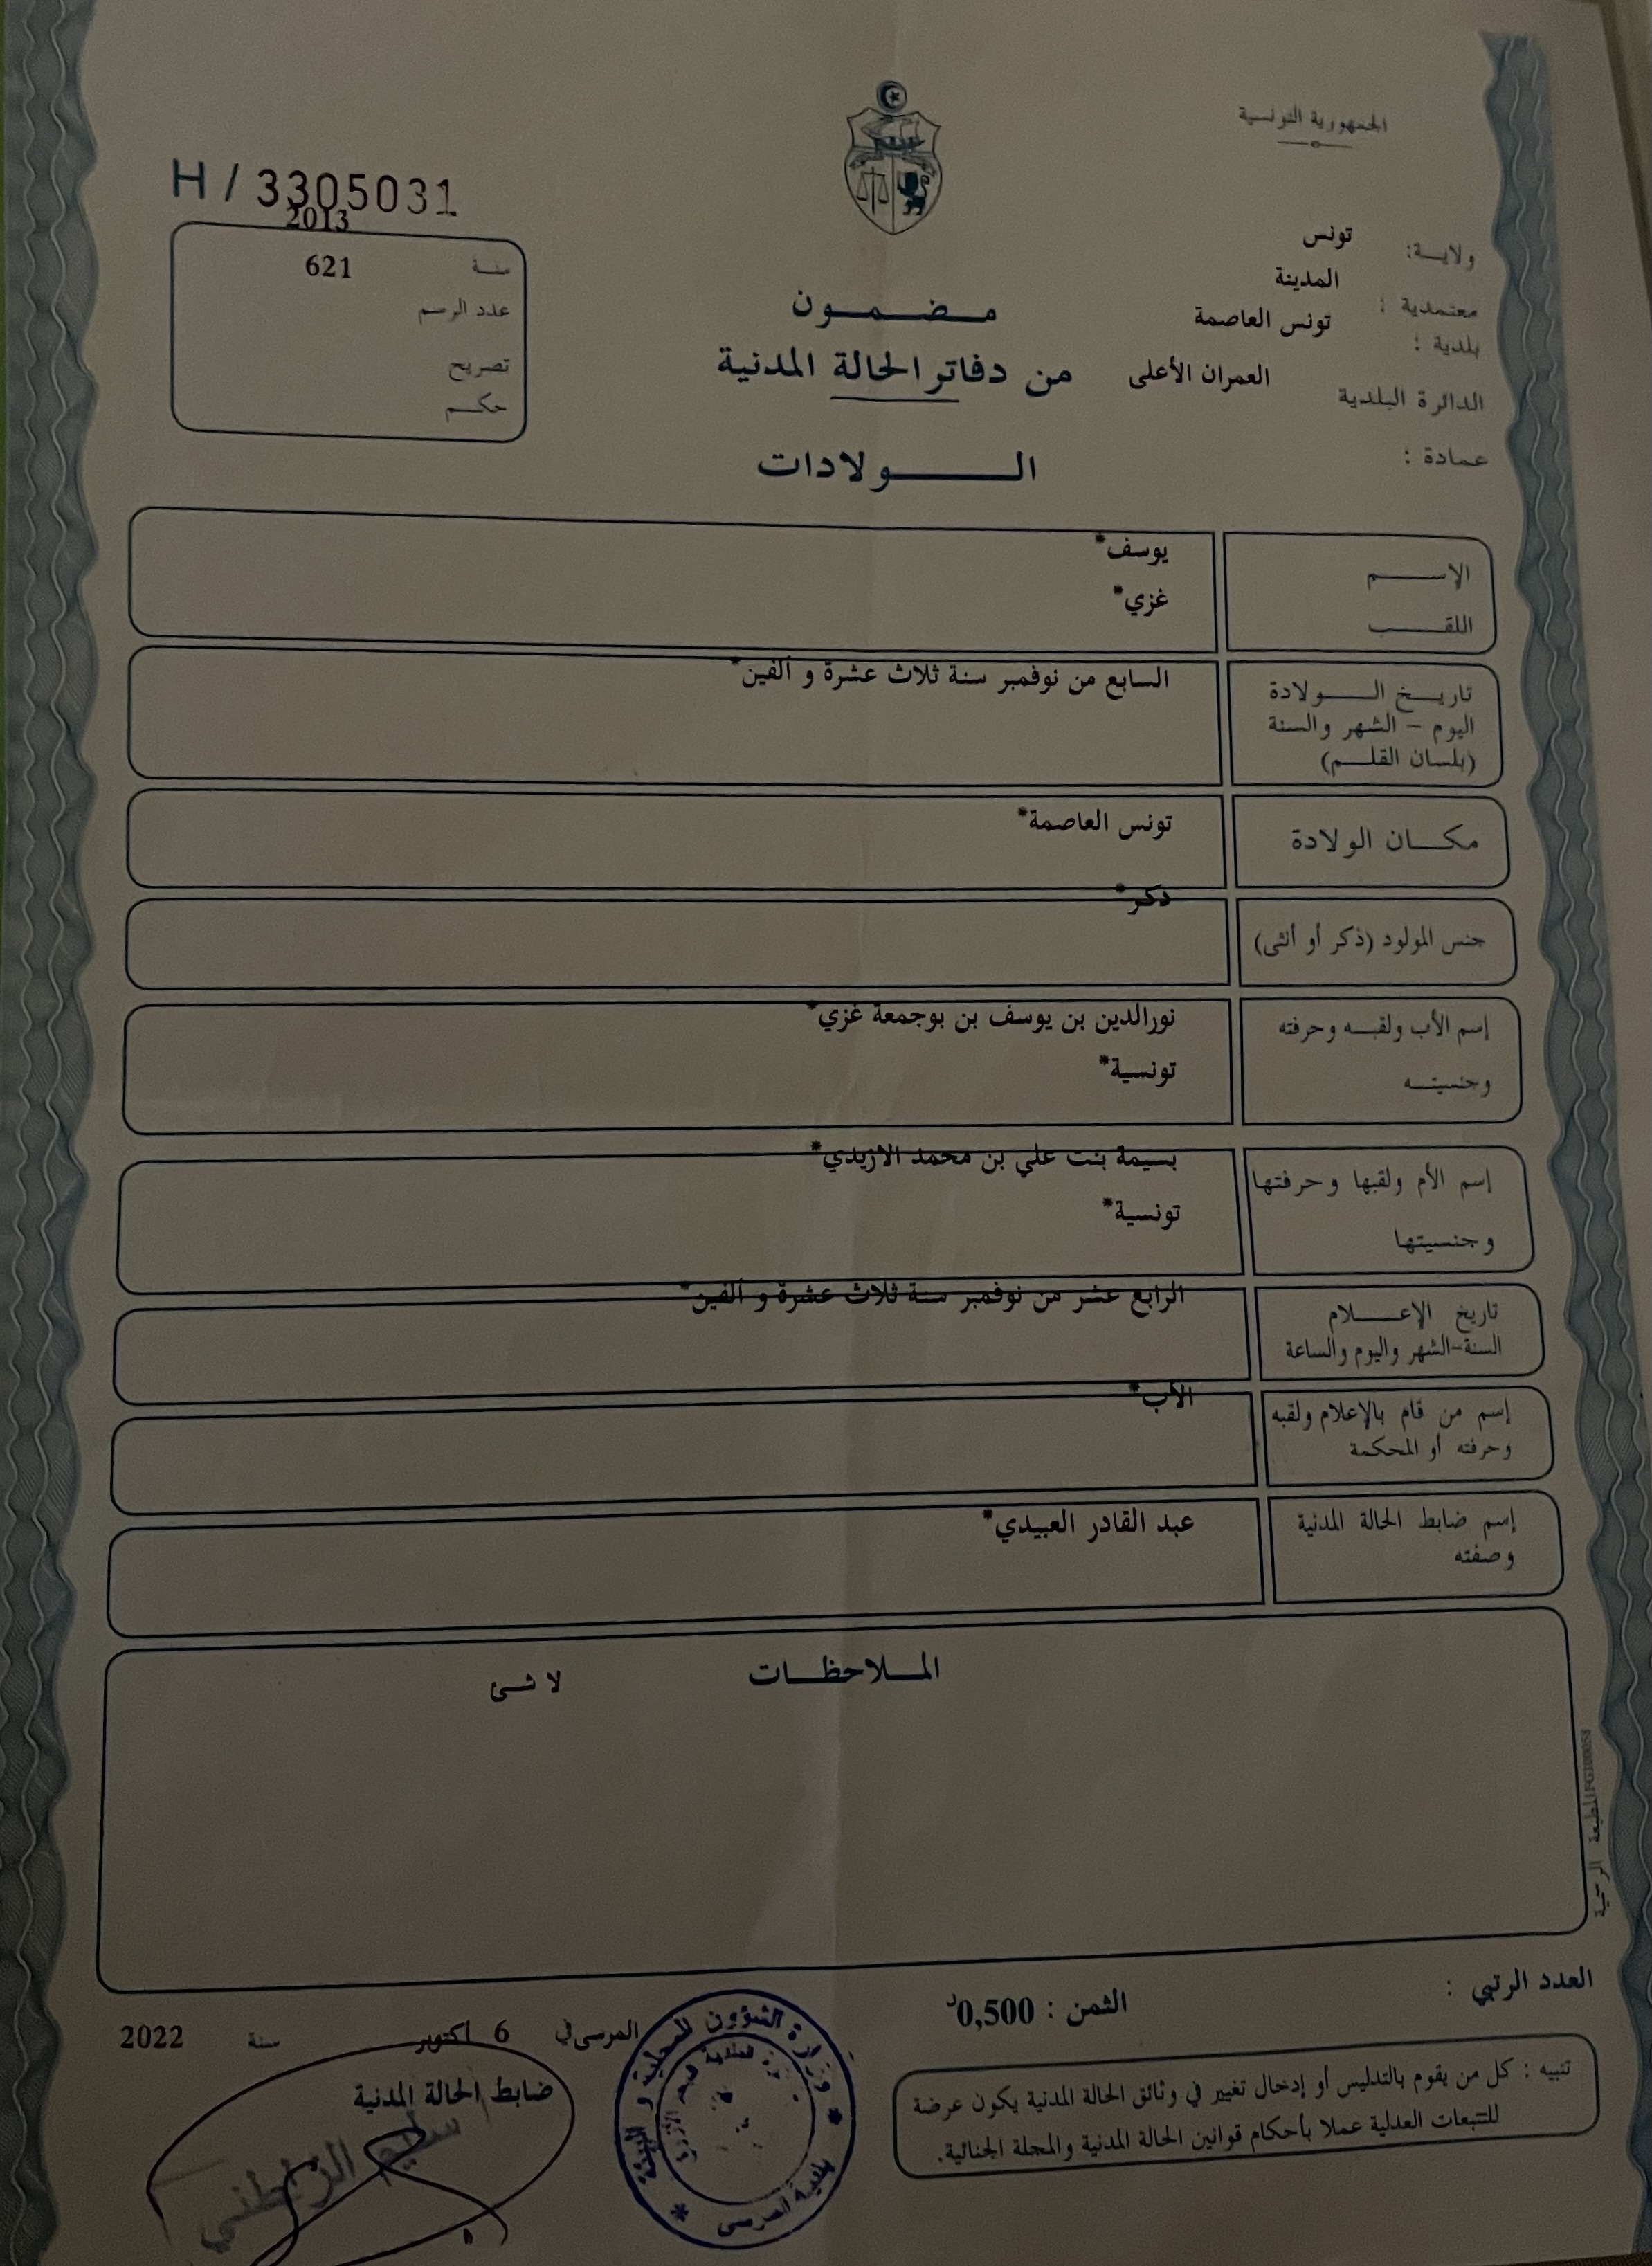 الجمهورية التونسية
ولاية: تونس
معتمدية : المدينة
بلدية : تونس العاصمة
الدائرة البلدية العمران الأعلى
عمادة :
H / 3305031
2013
سنة 621
عدد الرسم
تصريح
حكم
مضمون
من دفاتر الحالة المدنية
الولادات
الإسم يوسف*
اللقب غزي*
تاريخ الولادة السابع من نوفمبر سنة ثلاث عشرة و ألفين*
اليوم - الشهر والسنة
(بلسان القلم)
مكان الولادة تونس العاصمة*
جنس المولود (ذكر أو أنثى) ذكر*
إسم الأب ولقبه وحرفته نورالدين بن يوسف بن بوجمعة غزي*
وجنسيته تونسية*
إسم الأم ولقبها وحرفتها بسيمة بنت علي بن محمد الازيدي*
وجنسيتها تونسية*
تاريخ الإعلام الرابع عشر من نوفمبر سنة ثلاث عشرة و ألفين*
السنة-الشهر واليوم والساعة
إسم من قام بالإعلام ولقبه الأب*
وحرفته أو المحكمة
إسم ضابط الحالة المدنية عبد القادر العبيدي*
وصفته
الملاحظات
لا شئ
المطبعة الرسمية FG100058
العدد الرتبي :
الثمن : 0,500د
المرسى في 6 أكتوبر سنة 2022
ضابط الحالة المدنية
تنبيه : كل من يقوم بالتدليس أو إدخال تغيير في وثائق الحالة المدنية يكون عرضة
للتتبعات العدلية عملا بأحكام قوانين الحالة المدنية والمجلة الجنائية.
وزارة الشؤون المحلية و البيئة
بلدية المرسى